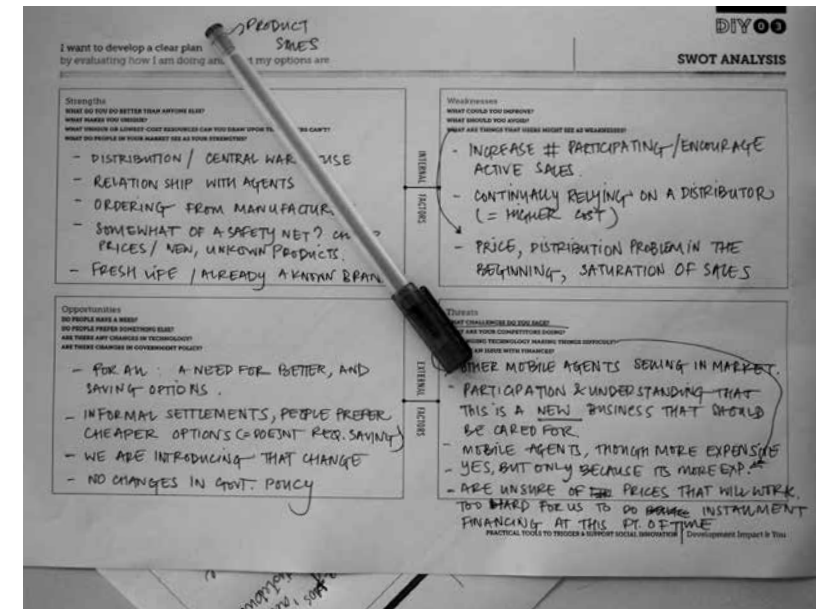 PRODUCT
SALES
DIY 03
I want to develop a clear plan
by evaluating how I am doing and my options are
SWOT ANALYSIS
Strengths
WHAT DO YOU DO BETTER THAN ANYONE ELSE?
WHAT MAKES YOU UNIQUE?
WHAT UNIQUE OR LOWEST-COST RESOURCES CAN YOU DRAW UPON CAN'T?
WHAT DO PEOPLE IN YOUR MARKET SEE AS YOUR STRENGTHS?
- DISTRIBUTION / CENTRAL
- RELATION SHIP WITH AGENTS
- ORDERING FROM
- SOMEWHAT OF A SAFETY NET?
PRICES / NEW, UNKOWN PRODUCTS.
- FRESH LIFE / ALREADY A KNOWN
INTERNAL FACTORS
Weaknesses
WHAT COULD YOU IMPROVE?
WHAT SHOULD YOU AVOID?
WHAT ARE THINGS THAT USERS MIGHT SEE AS WEAKNESSES?
- INCREASE # PARTICIPATING / ENCOURAGE
ACTIVE SALES.
- CONTINUALLY RELYING ON A DISTRIBUTOR
(= HIGHER COST)
- PRICE, DISTRIBUTION PROBLEM IN THE
BEGINNING, SATURATION OF SALES
Opportunities
DO PEOPLE HAVE A NEED?
DO PEOPLE PREFER SOMETHING ELSE?
ARE THERE ANY CHANGES IN TECHNOLOGY?
ARE THERE CHANGES IN GOVERNMENT POLICY?
- FOR ALL : A NEED FOR BETTER, AND
SAVING OPTIONS.
- INFORMAL SETTLEMENTS, PEOPLE PREFER
CHEAPER OPTIONS (= DOESNT REQ. SAVING)
- WE ARE INTRODUCING THAT CHANGE
- NO CHANGES IN GOVT. POLICY
EXTERNAL FACTORS
Threats
WHAT CHALLENGES DO YOU FACE?
WHAT ARE YOUR COMPETITORS DOING?
TECHNOLOGY MAKING THINGS DIFFICULT?
AN ISSUE WITH FINANCES?
- OTHER MOBILE AGENTS SELLING IN MARKET.
- PARTICIPATION & UNDERSTANDING THAT
THIS IS A NEW BUSINESS THAT SHOULD
BE CARED FOR
- MOBILE AGENTS, THOUGH MORE EXPENSIVE
- YES, BUT ONLY BECAUSE ITS MORE EXP.
- ARE UNSURE OF PRICES THAT WILL WORK.
TOO HARD FOR US TO DO INSTALLMENT
FINANCING AT THIS PT. OF TIME
PRACTICAL TOOLS TO TRIGGER & SUPPORT SOCIAL INNOVATION | Development Impact & You